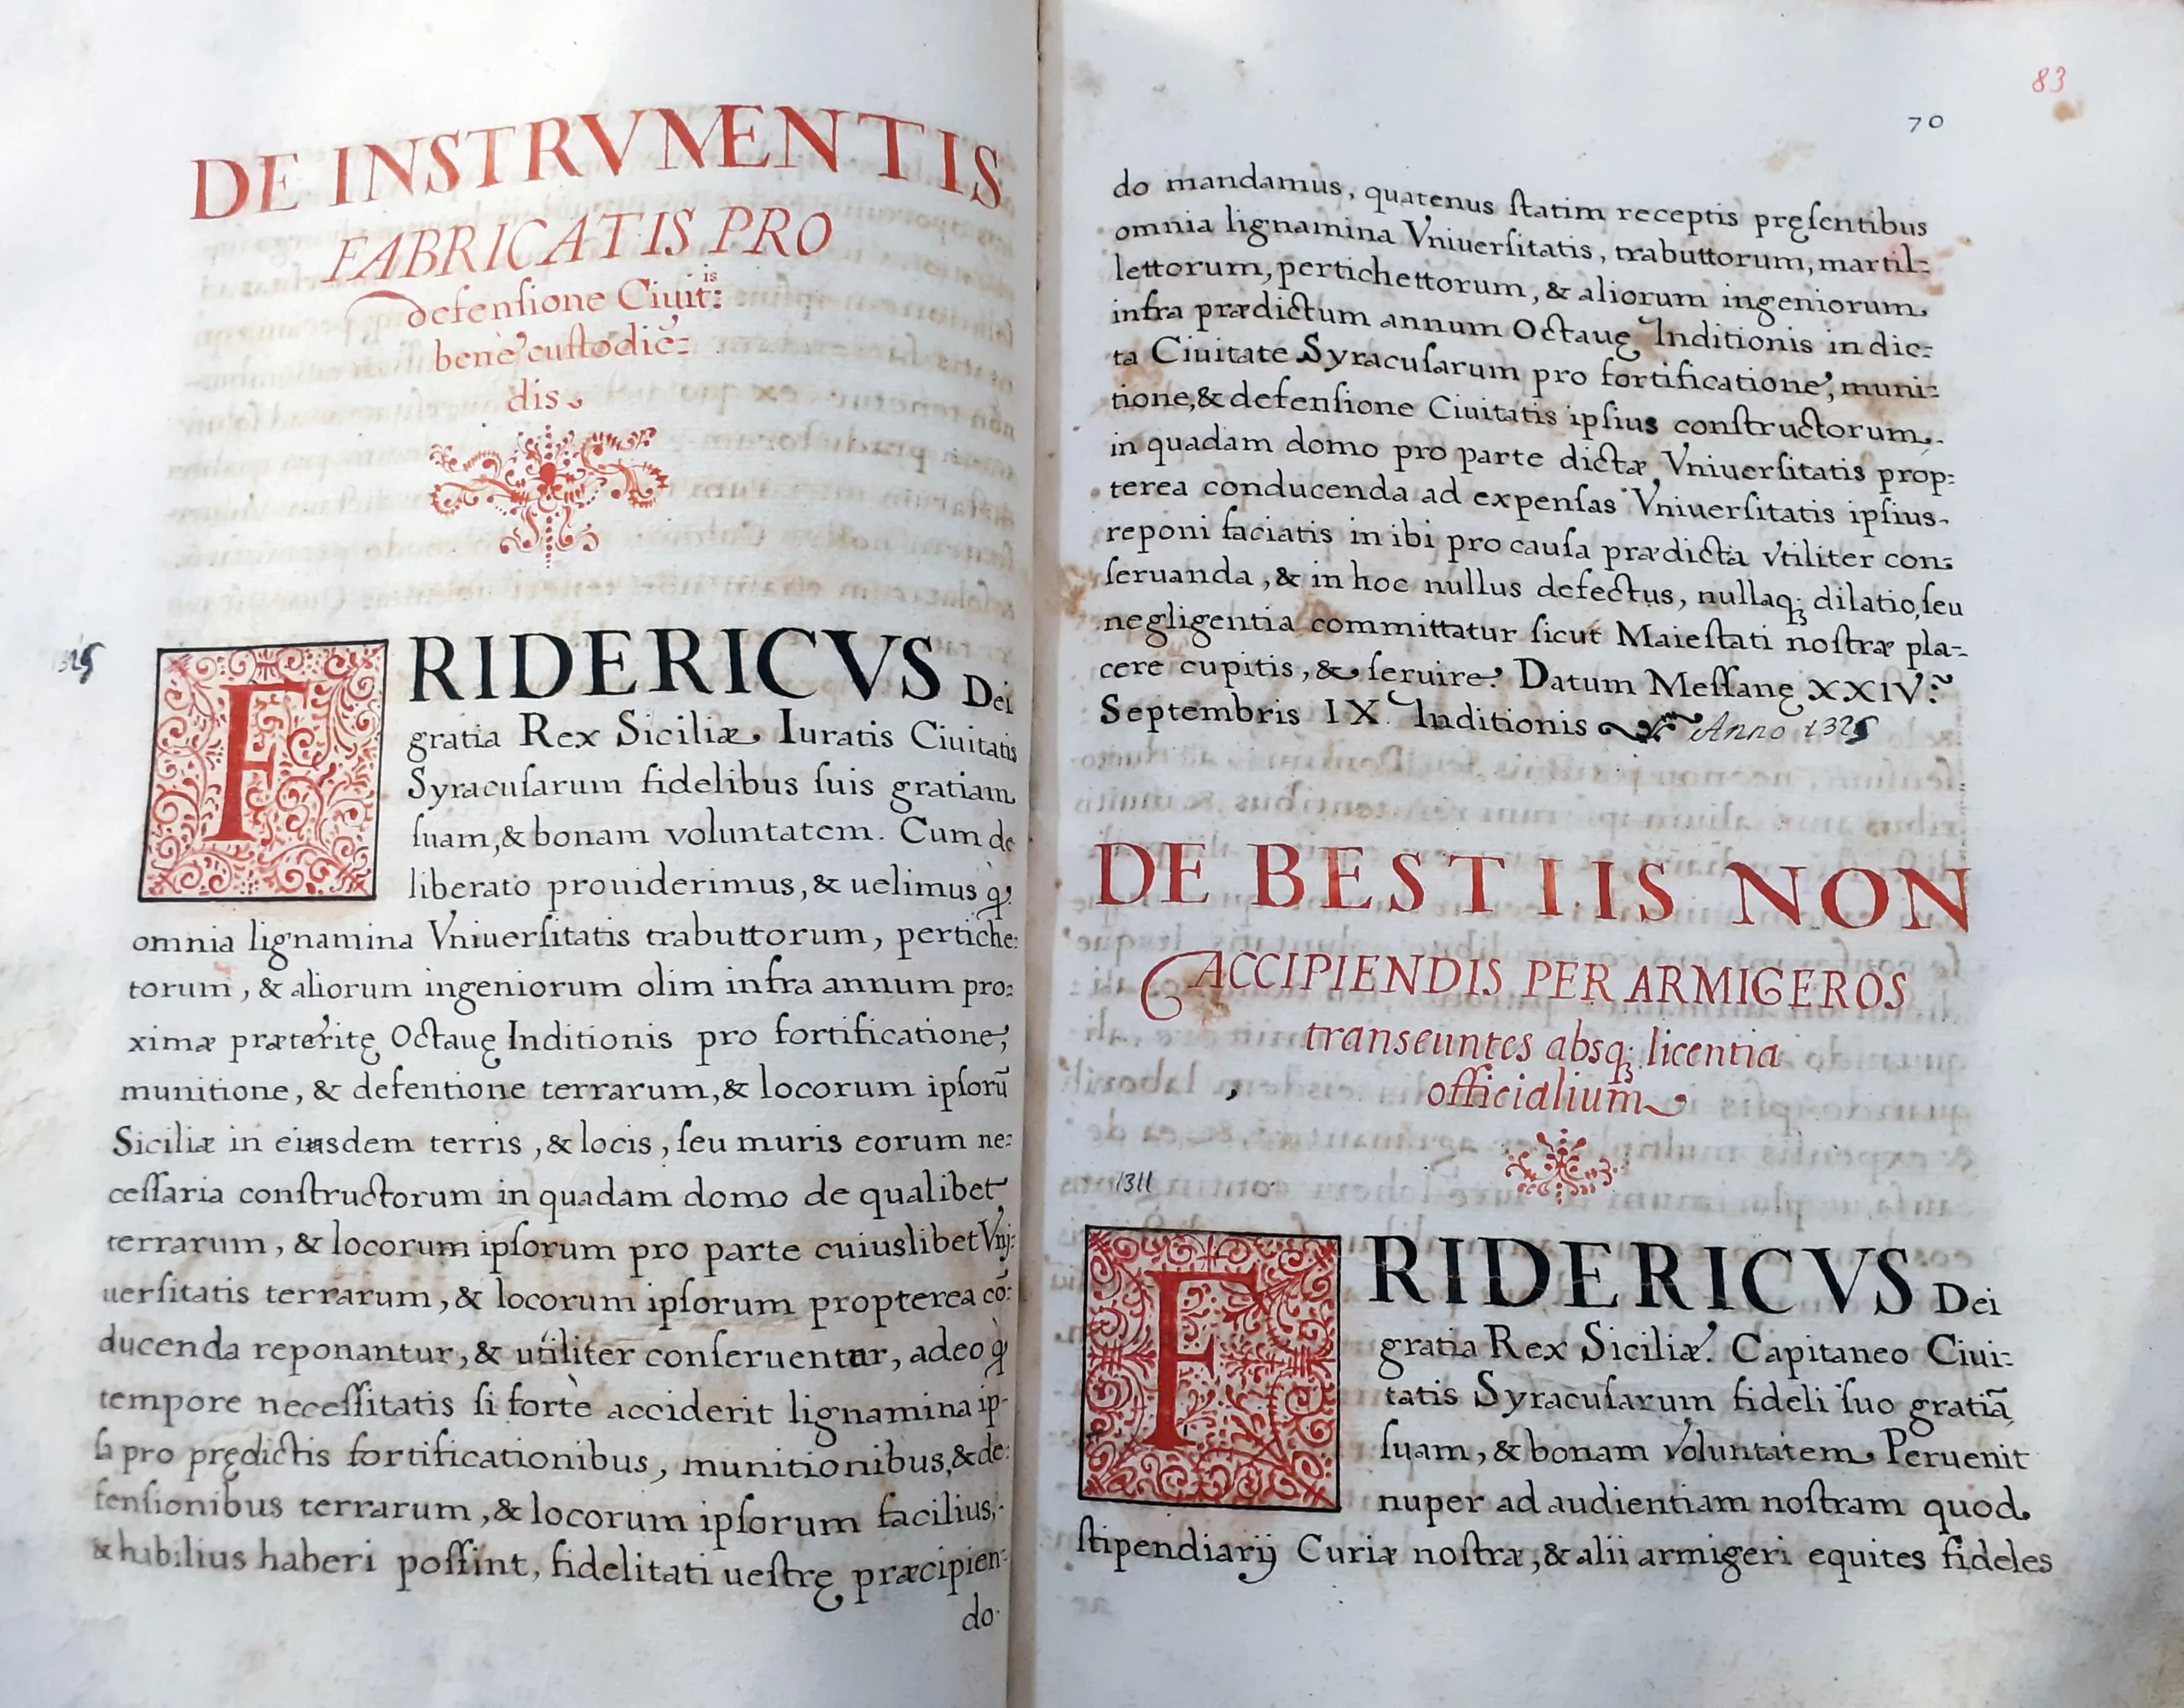 DE INSTRVMENTIS
FABRICATIS PRO
defenſione Ciuit:is
bene cuſtodiē:
dis
FRIDERICVS Dei
gratia Rex Siciliæ Iuratis Ciuitatis
Syracuſarum fidelibus ſuis gratiam
ſuam, & bonam voluntatem. Cum de
liberato prouiderimus, & uelimus ꝙ
omnia lignamina Vniuerſitatis trabuttorum, pertiche:
torum, & aliorum ingeniorum olim infra annum pro:
ximæ præteritę Octauę Inditionis pro fortificatione,
munitione, & defentione terrarum, & locorum ipſorū
Siciliæ in eiusdem terris, & locis, ſeu muris eorum ne:
ceſſaria conſtructorum in quadam domo de qualibet
terrarum, & locorum ipſorum pro parte cuiuslibet Vnj:
uerſitatis terrarum, & locorum ipſorum propterea cō:
ducenda reponantur, & utiliter conſeruentur, adeo ꝙ
tempore neceſſitatis ſi forte acciderit lignamina ip-
ſa pro prędictis fortificationibus, munitionibus, & de:
fenſionibus terrarum, & locorum ipſorum facilius,
& habilius haberi poſſint, fidelitati ueſtrę præcipien:
do
83
70
do mandamus, quatenus ſtatim receptis pręſentibus
omnia lignamina Vniuerſitatis, trabuttorum, martil:
lettorum, pertichettorum, & aliorum ingeniorum
infra prædictum annum Octauę Inditionis in dic:
ta Ciuitate Syracuſarum pro fortificatione, muni:
tione, & defenſione Ciuitatis ipſius conſtructorum
in quadam domo pro parte dictæ Vniuerſitatis prop:
terea conducenda ad expenſas Vniuerſitatis ipſius
reponi faciatis in ibi pro cauſa prædicta vtiliter con:
ſeruanda, & in hoc nullus defectus, nullaqꝫ dilatio, ſeu
negligentia committatur ſicut Maieſtati noſtræ pla-
cere cupitis, & ſeruire. Datum Meſſanę XXIV.
Septembris IX. Inditionis Anno 1325
DE BESTIIS NON
ACCIPIENDIS PER ARMIGEROS
transeuntes absqꝫ licentia
officialium
1311
FRIDERICVS Dei
gratia Rex Siciliæ. Capitaneo Ciui:
tatis Syracuſarum fideli ſuo gratiā
ſuam, & bonam voluntatem Peruenit
nuper ad audientiam noſtram quod
ſtipendiarij Curiæ noſtræ, & alii armigeri equites fideles